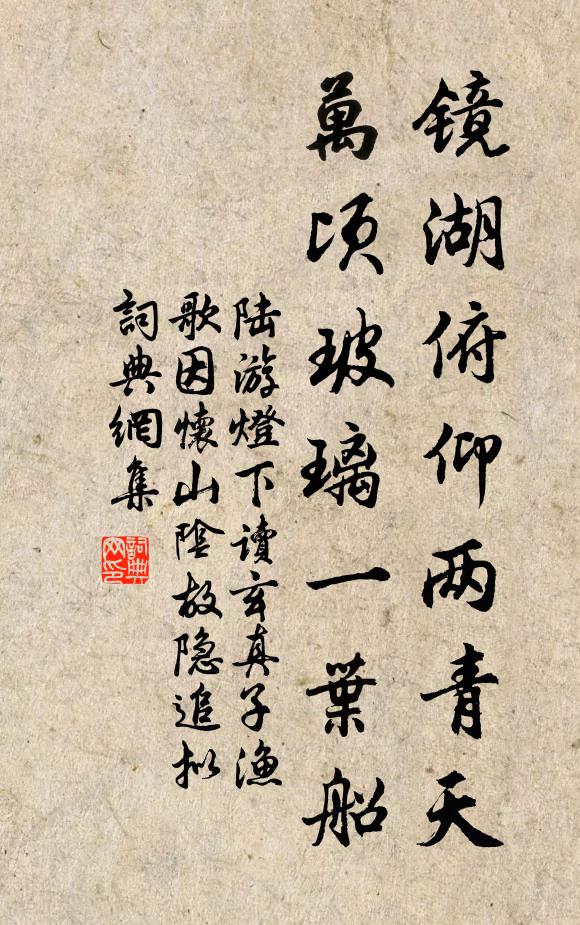 镜湖俯仰两青天
萬頃玻璃一葉船
陆游燈下讀玄真子漁
歌因懷山陰故隐追拟
詞典網集
詞典
网印